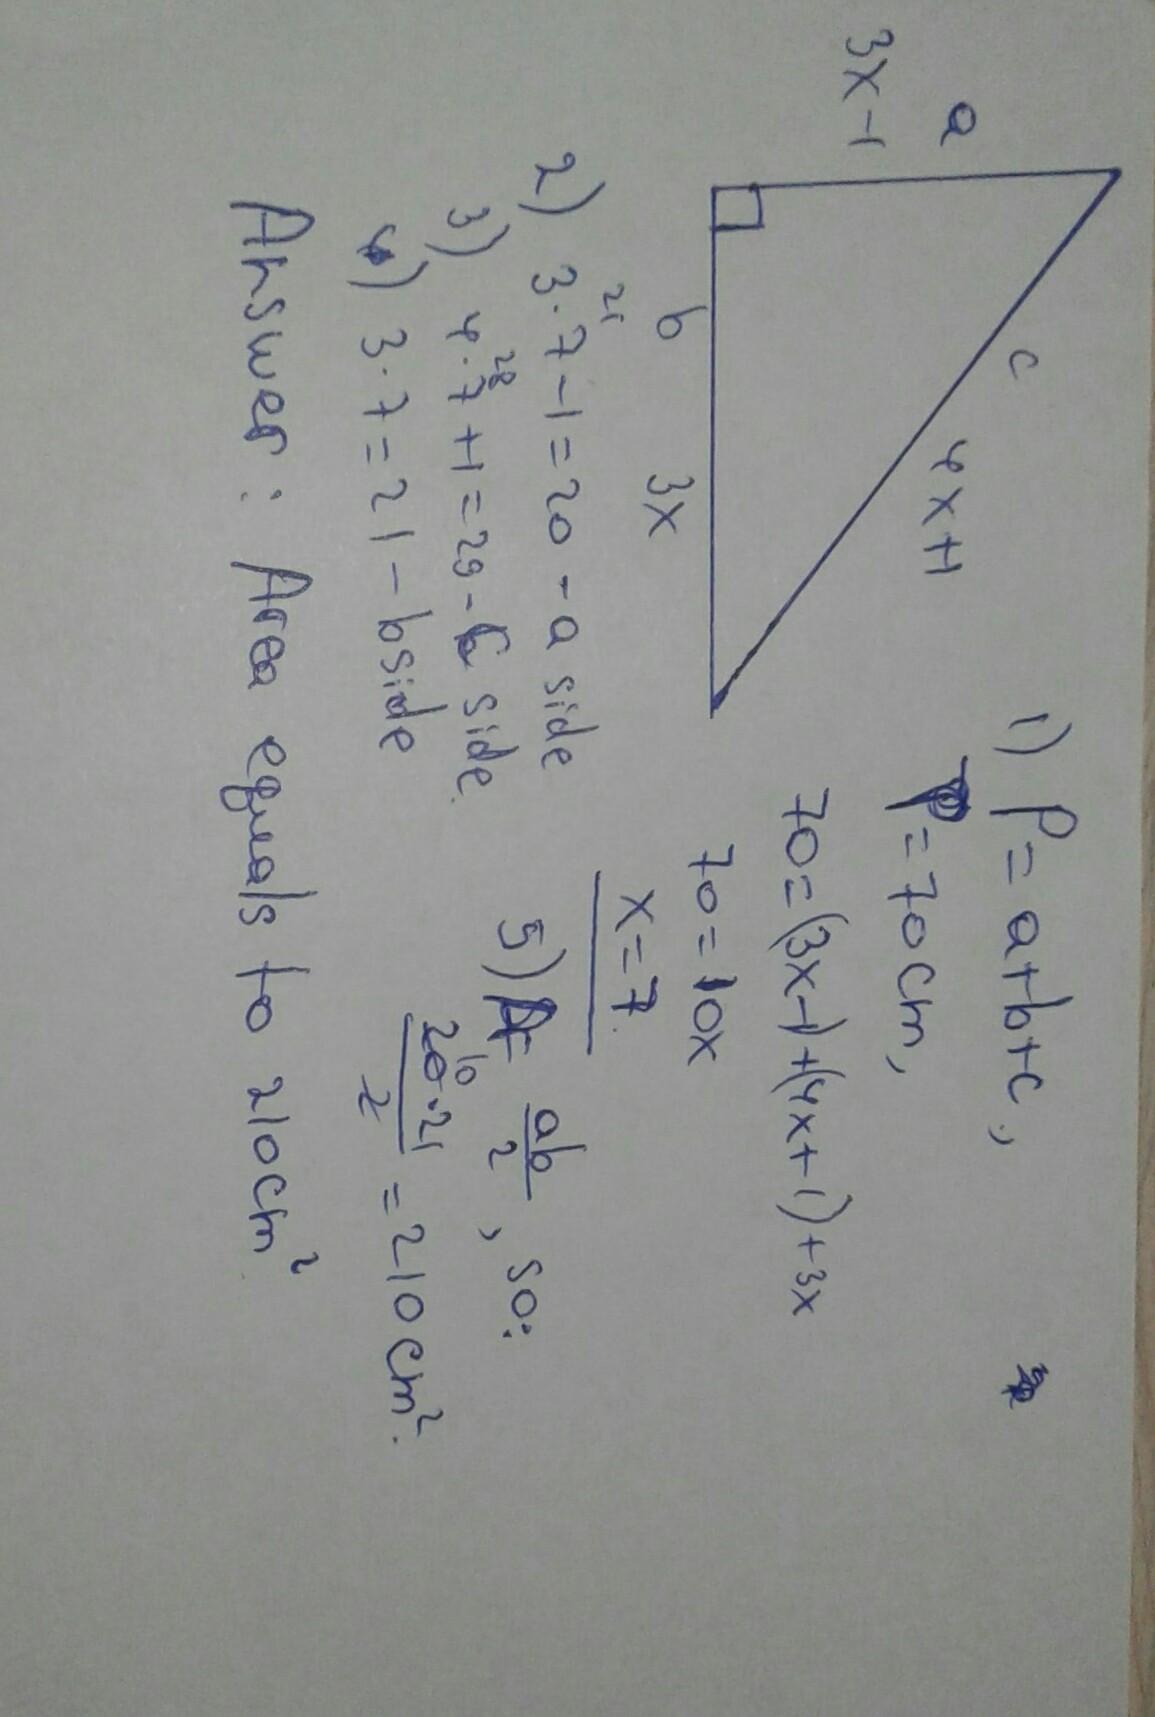 a
3x-1
c
4x+1
b
3x
1) P=a+b+c,
P=70cm,
70=(3x-1)+(4x+1)+3x
70=10x
x=7.
2) 3·7-1=20-a side
21
3) 4·7+1=29-c side.
28
4) 3·7=21-bside
5) A= ab/2, so:
20·21/2=210cm².
10
Answer: Area equals to 210cm²